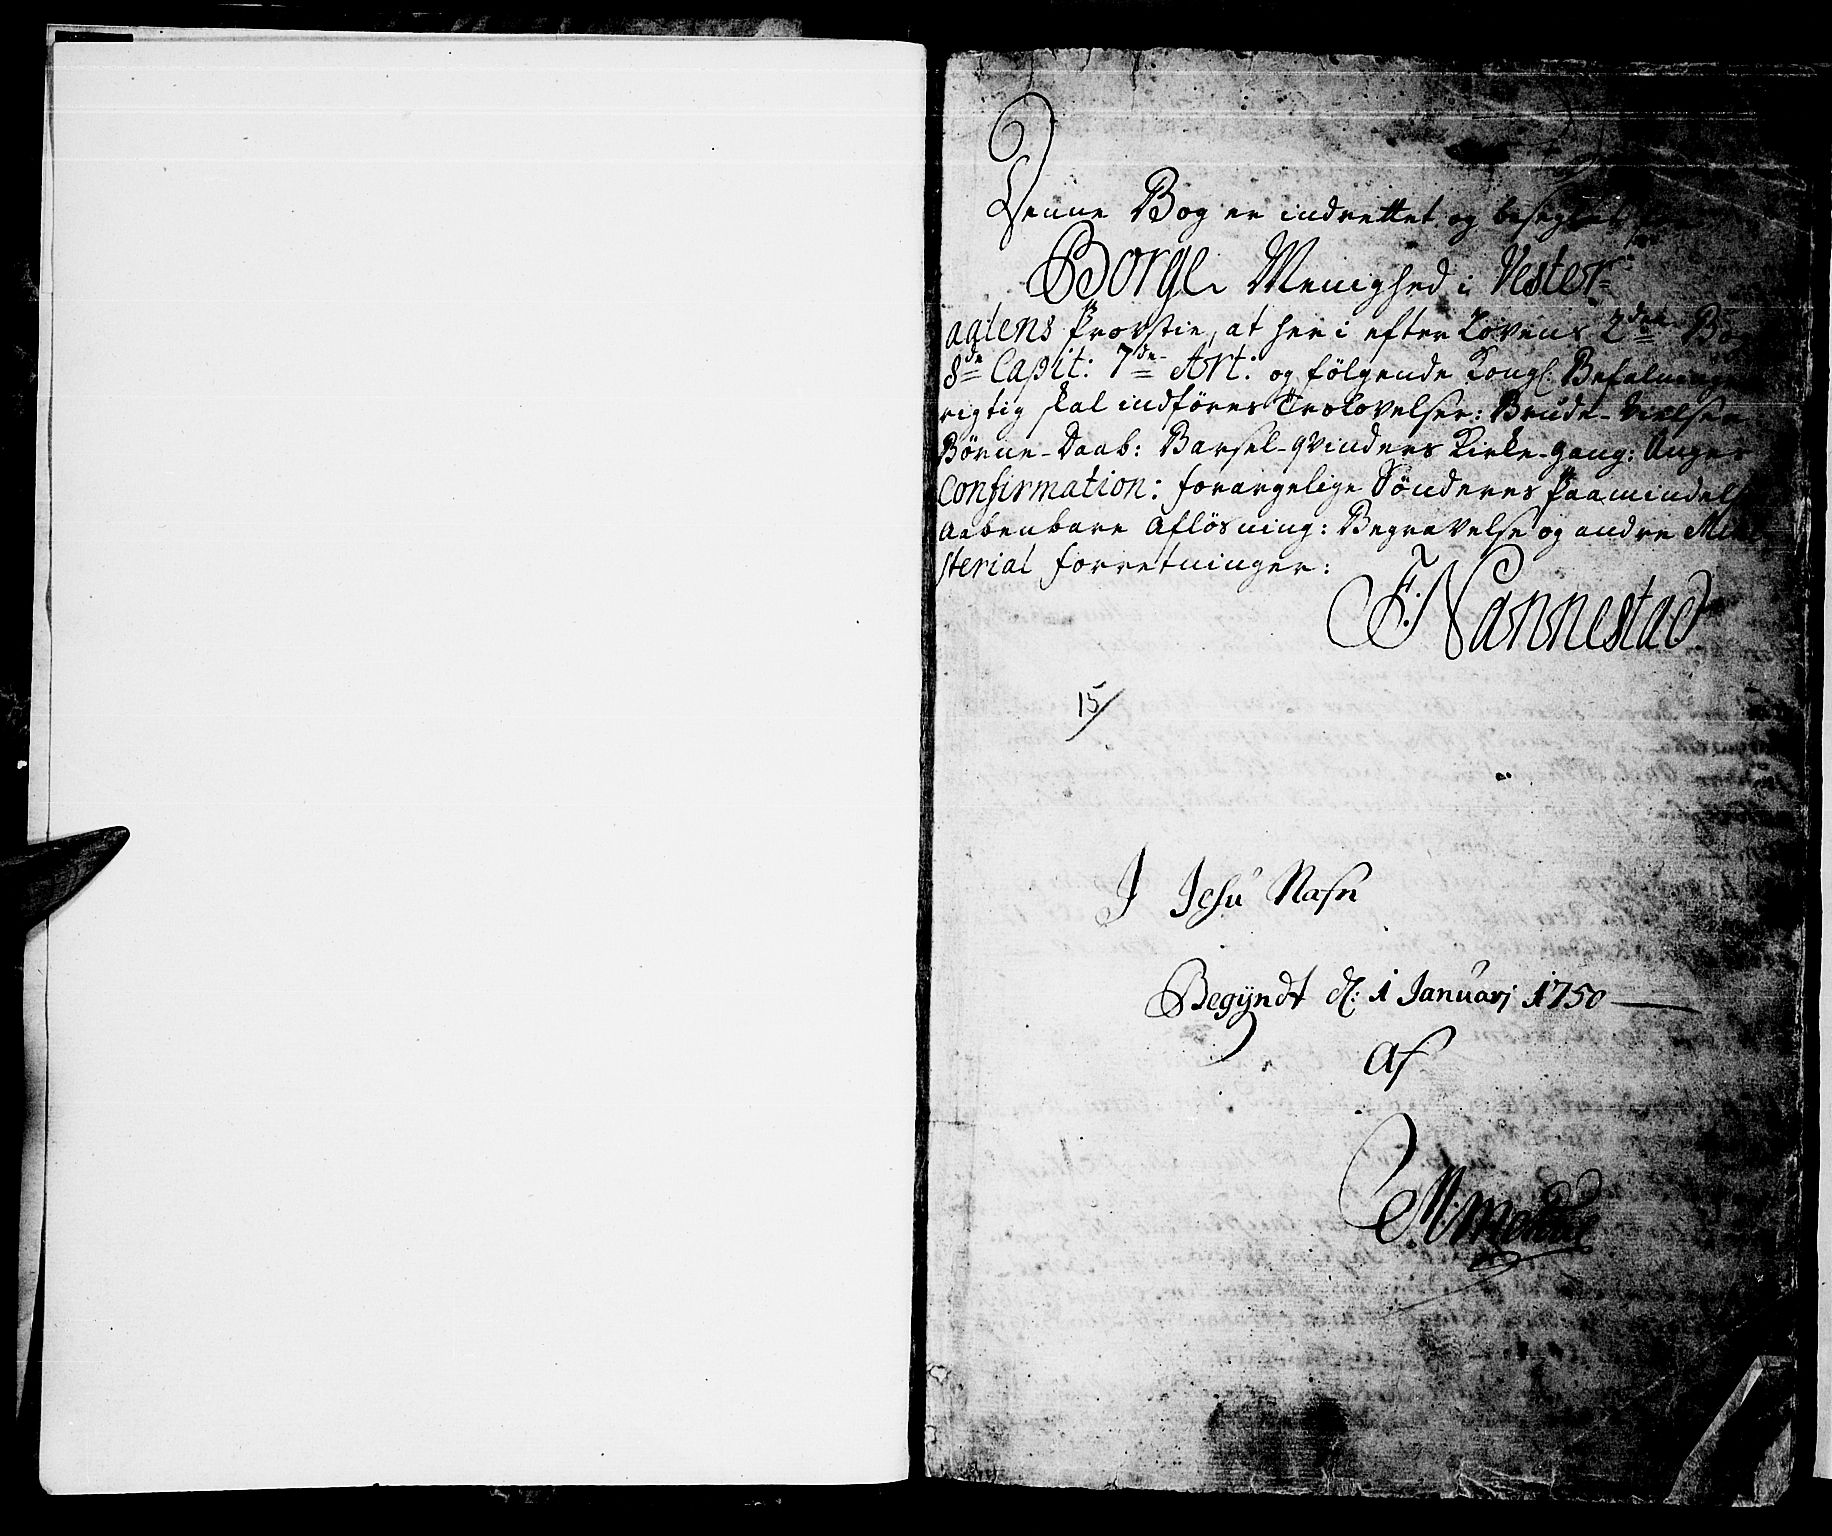 Denne Bog er indrettet og beseglet for
Borge Menighed i Vester=
aalens Provstie, at her i efter Lovens 2den Bog
8de Capit: 7de Art: og følgende Kongl. Befalninger
rigtig skal indføres Trolovelser: Brude-Vielser
Børne-Daab: Barsel-qvinders Kirke-gang: Unges
Confirmation: forargelige Sønderes Paamindelse
Aabenbare Afløsning: Begravelse og andre Mini
sterial forretninger:
F: Nannestad
15/
I Jesu Nafn
Begÿndt d: 1 Januarj 1750
Af